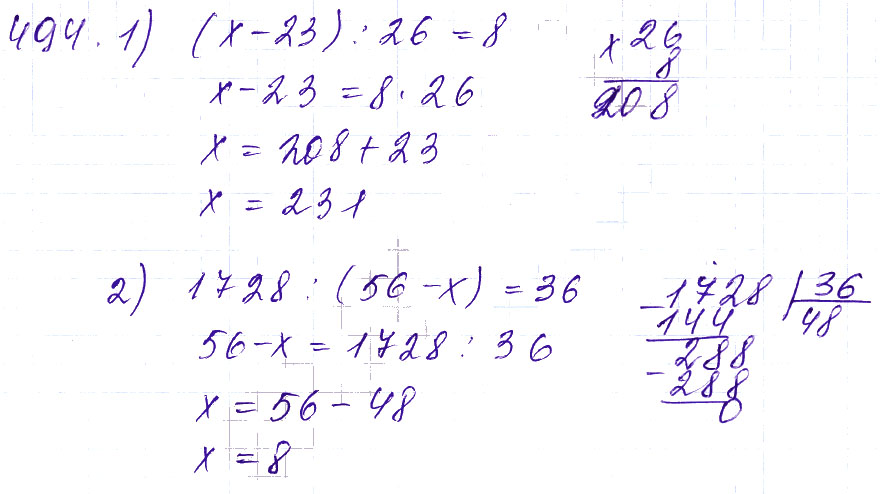 494. 1) (x - 23) : 26 = 8
x - 23 = 8 · 26
x = 208 + 23
x = 231
× 26
8
208
2) 1728 : (56 - x) = 36
56 - x = 1728 : 36
x = 56 - 48
x = 8
- 1728 | 36
144 48
- 288
288
0